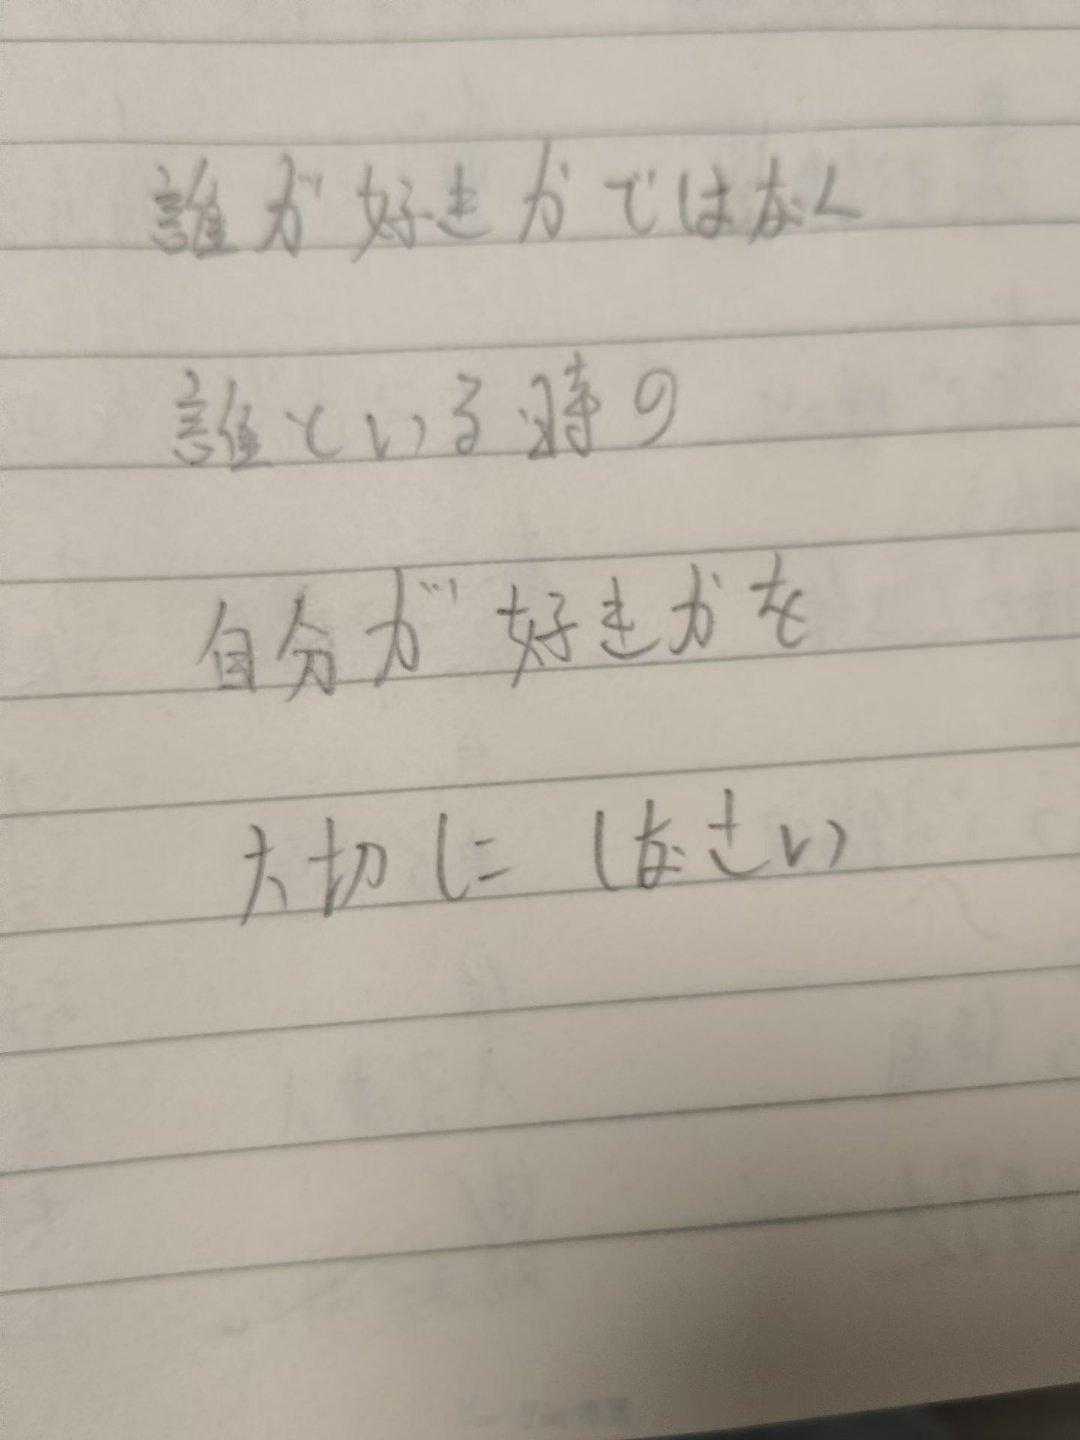 誰が好きかではなく
誰といる時の
自分が好きかを
大切にしなさい